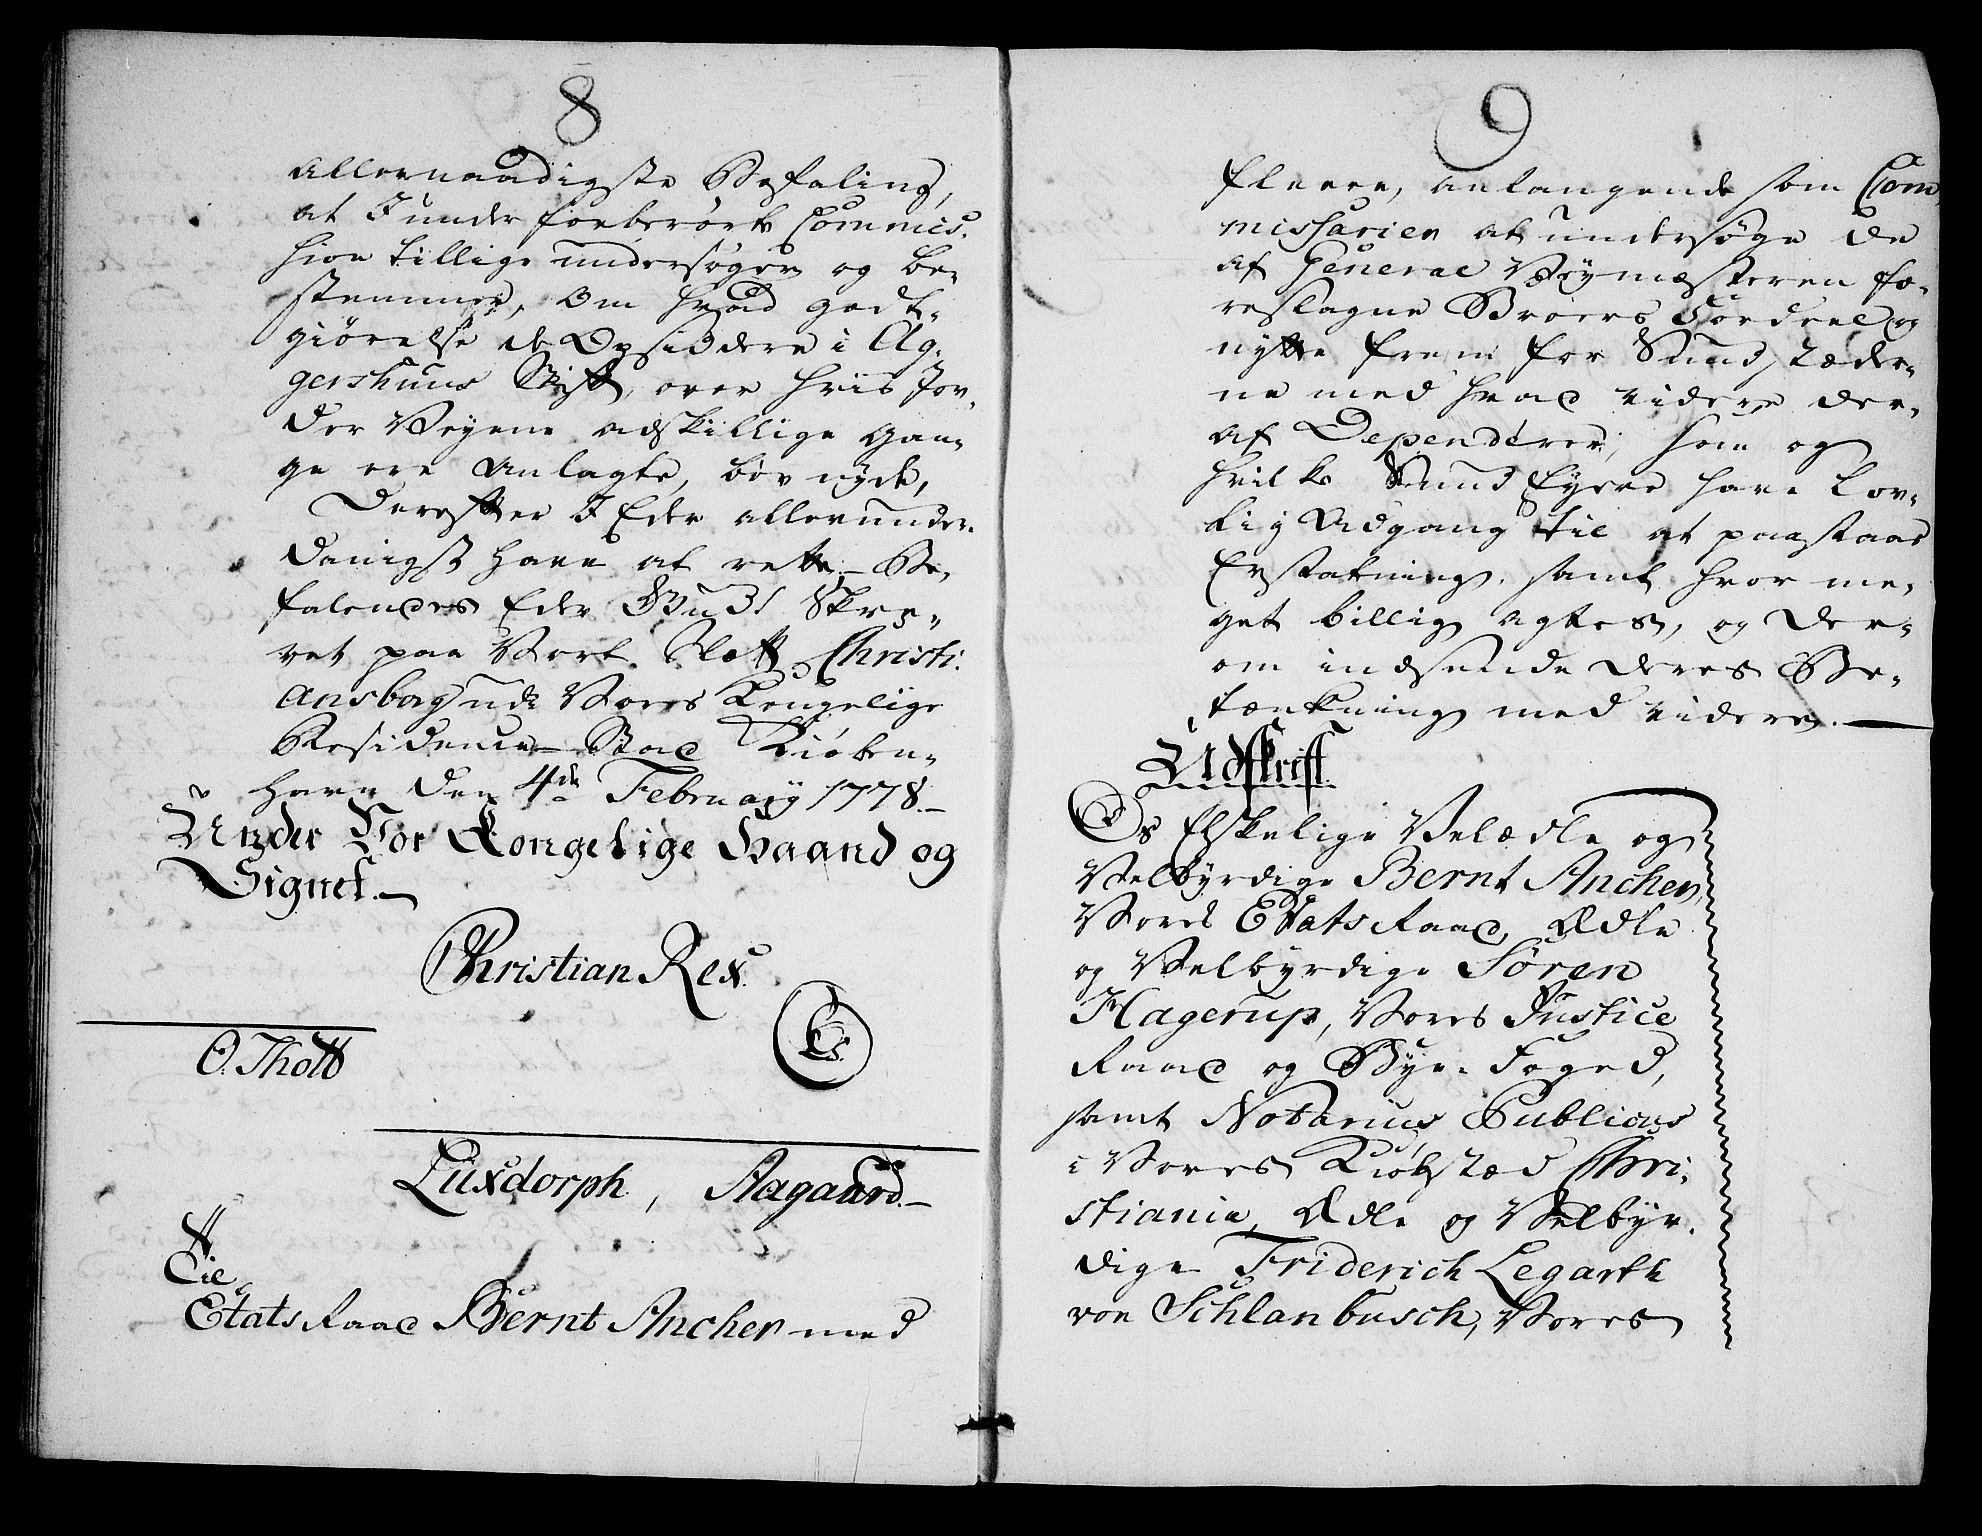 8
allernaadigste Befaling,
at I under foreberørte Commis-
hion tillige undersøger og be-
stemmer, Om hvad godt-
giørelse de Opsiddere i Ag-
gershuus Stift, over hviis Jor-
der Veyene adskillige Gan-
ge ere Anlagte, bør nyde,
Derefter I Eder allerunder-
danigst have at rette, Be-
falendes Eder Gud! Skre-
vet paa Vort Slott Christi-
ansborg udi Vores Kongelige
Residence Stad Kiøben-
havn den 4de Februarÿ 1778.
Under Vor Kongelige Haand og
Signet.
Christian Rex.
LS.
O. Thott
Luxdorph, Aagaard.
Til
Etats Raad Bernt Ancher med
9
fleere, anlangende som Com-
missarier at undersøge de
af General Veymesteren fo-
reslagne Broers Fordeel og
nytte frem for Sund stæder-
ne med hvad videre der-
af Dependerer, som og
hvilke Sund Eyere have Lov-
lig Adgang til at paastaae
Erstatning, samt hvor me-
get billig agtes, og der-
om indsende deres Be-
tænkning med videre.
Udskrift.
Os Elskelige Velædle og
Velbyrdige Bernt Ancher,
Vores Etats Raad, Ædle
og Velbyrdige Søren
Hagerup, Vores Justice
Raad og Bye-Foged,
samt Notarius Publicus
i Vores Kiøbstæd Chri-
stiania, Ædle og Velbyr-
dige Friderich Legarth
von Schlanbusch, Vores